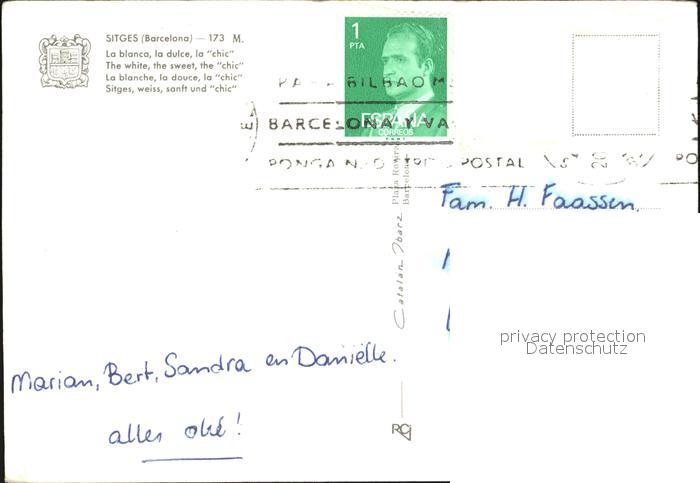 SITGES (Barcelona) — 173 M.
La blanca, la dulce, la "chic"
The white, the sweet, the "chic"
La blanche, la douce, la "chic"
Sitges, weiss, sanft und "chic"
1
PTA
ESPAÑA
CORREOS
BILBAO
BARCELONA Y VA
PONGA POSTAL
Fam. H. Faassen.
Catalan Ibarz
Barcelona
privacy protection
Datenschutz
Marian, Bert, Sandra en Daniëlle.
alles oké!